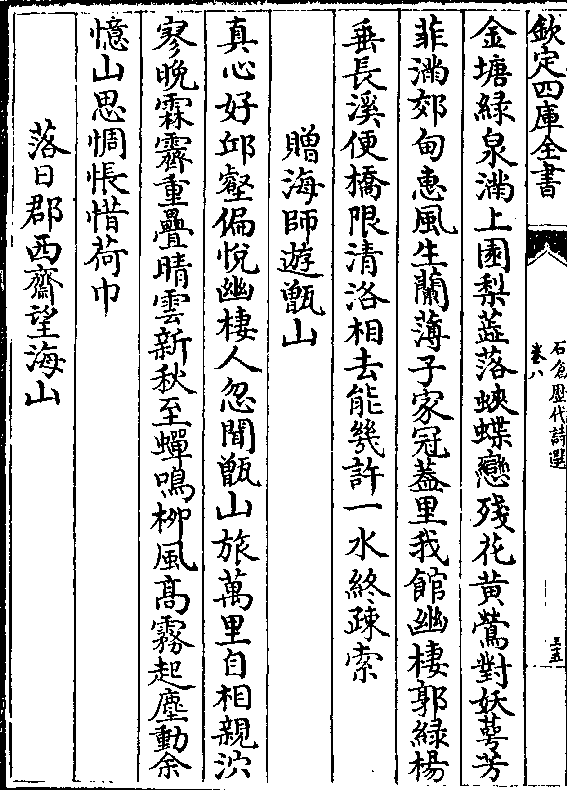 欽定四庫全書
石倉歷代詩選
卷八
三五
金塘緑泉滿上園梨蕋落蛺蝶戀殘花黄鶯對妖萼芳
菲滿郊甸惠風生蘭薄子家冠蓋里我館幽棲郭緑楊
垂長溪便橋限清洛相去能幾許一水終疎索
贈海師遊甑山
真心好邱壑偏悦幽棲人忽聞甑山旅萬里自相親泬
寥晩霖霽重疊晴雲新秋至蟬鳴柳風髙霧起塵動余
憶山思惆悵惜荷巾
落日郡西齋望海山